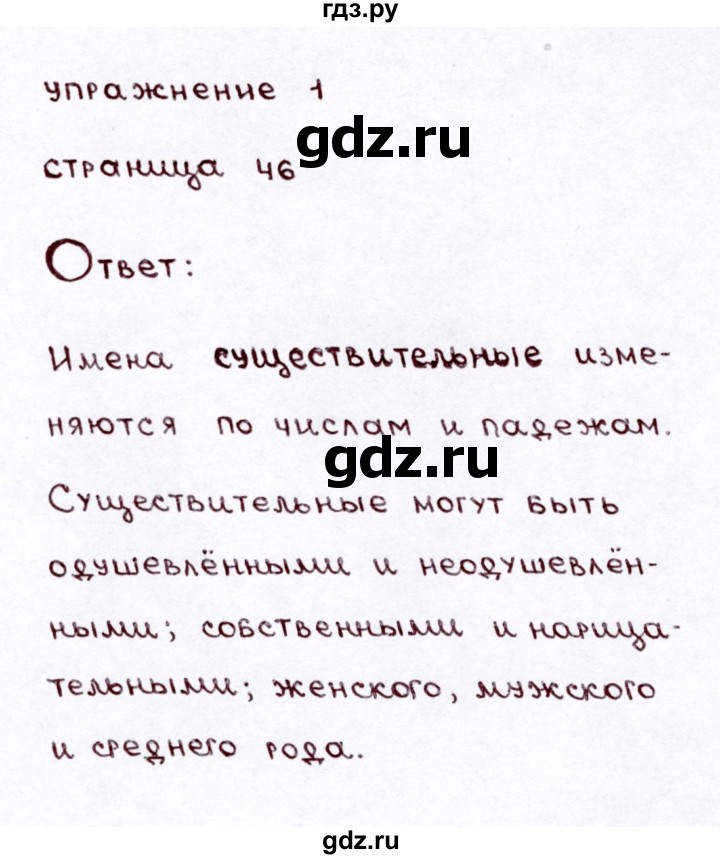 гдз.ру
упражнение 1
gdz.ru
страница 46
Ответ:
Имена существительные изме-
няются по числам и падежам.
gdz.ru
Существительные могут быть
одушевлёнными и неодушевлён-
ными; собственными и нарица-
тельными; женского, мужского
и среднего рода.
gdz.ru